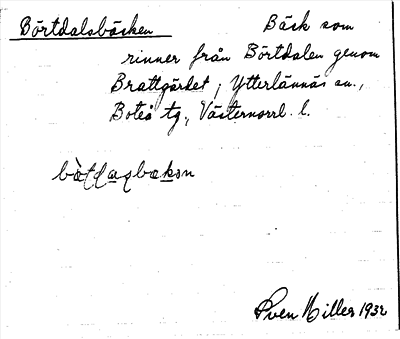 Börtdalsbäcken Bäck som
rinner från Börtdalen genom
Brattgärdet, Ytterlännäs sn.,
Boteå tg., Västernorrl. l.
Sven Miller 1932